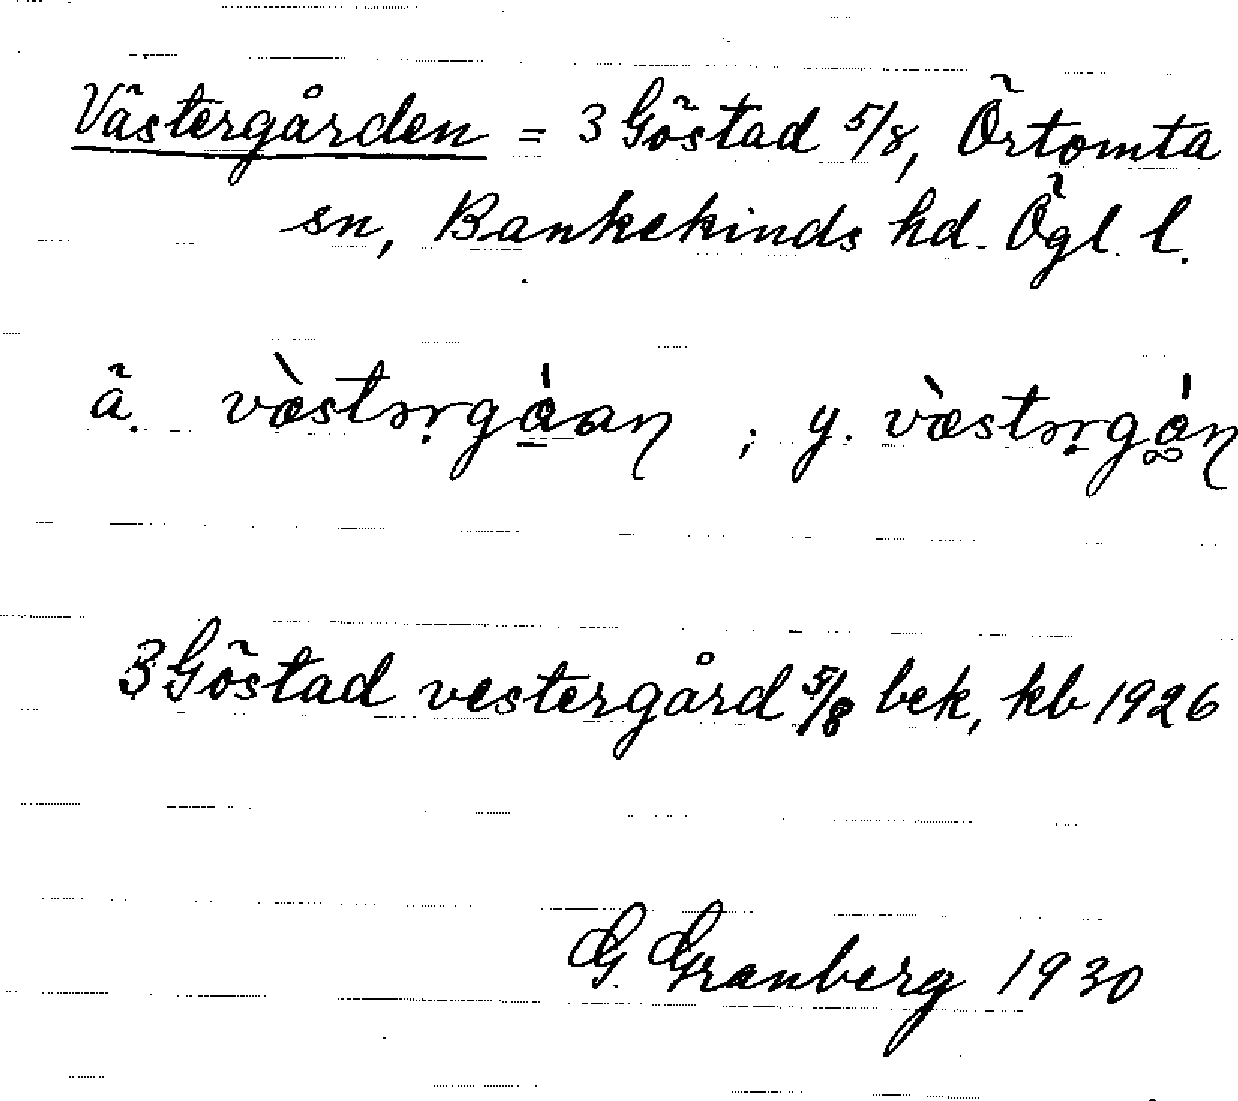 Västergården = 3 Göstad 5/8, Örtomta
sn, Bankekinds hd. Ögl. l.
ä. ; y.
3 Göstad vestergård 5/8 bek, kb 1926
G. Granberg 1930